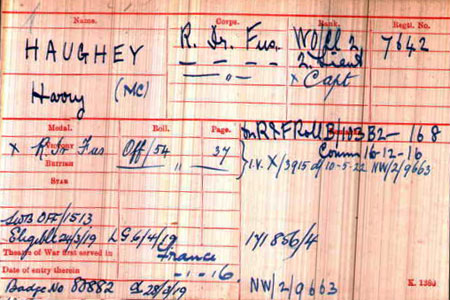 Name. Corps. Rank. Regtl. No.
HAUGHEY R. Ir. Fus. WO Cl 2 7642
— — — — 2. Lieut
Harry (MC) — " — x Capt
Medal. Roll. Page.
VICTORY x R. Ir Fus Off/54 37
BRITISH — " "
STAR
on R I F Roll B/103 B2 — 168
Comm 16-12-16
I.V. X/3915 d/10-5-22 NW/2/9663
SWB OFF/1513
Eligible 24/3/19 LG 6/4/19 141856/4
Theatre of War first served in France
Date of entry therein -1-16
Badge No 80882 28/3/19 NW/2/9663
K. 1380